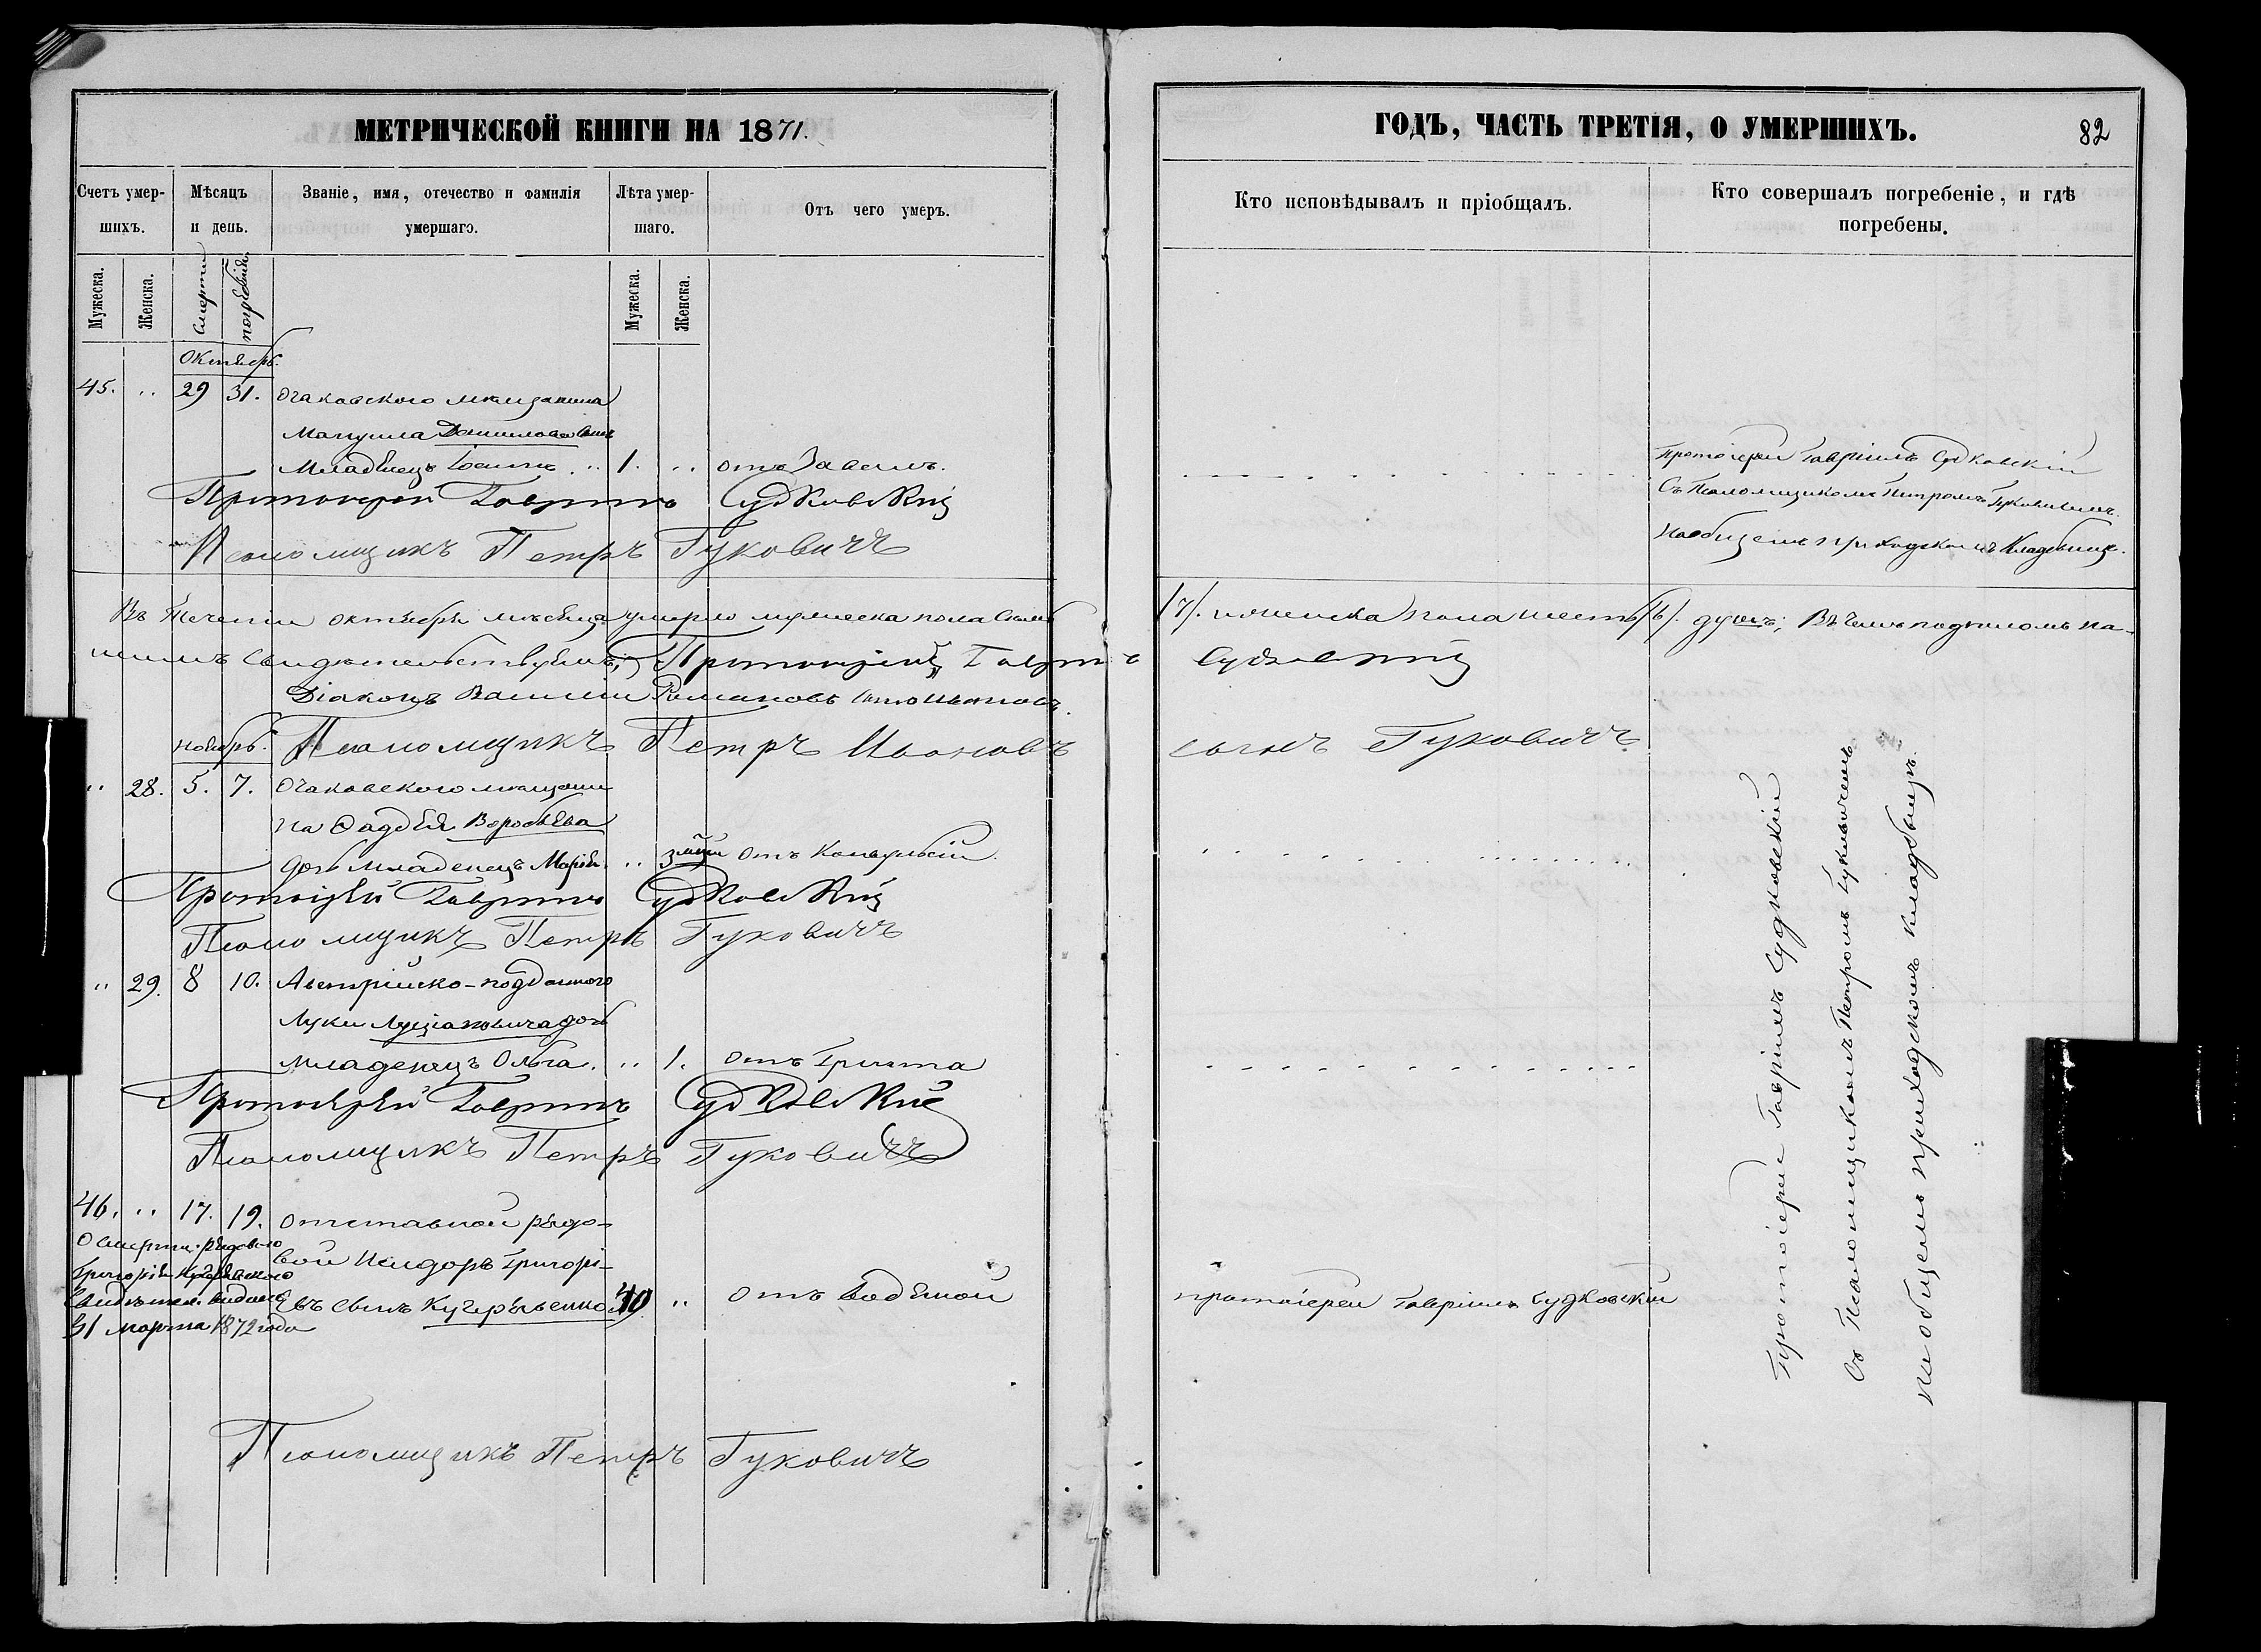 МЕТРИЧЕСКОЙ КНИГИ НА 1871.
Счетъ умер-
шихъ.
Мѣсяцъ
и день.
Званіе, имя, отечество и фамилія
умершаго.
Лѣта умер-
шаго.
Отъ чего умеръ.
Мужеска.
Женска.
смерти
погребенія
Мужеска.
Женска.
Октябрь.
45. " 29 31. Очаковского мѣщанина
Мануила
Младенецъ " 1. "
Протоіерей Гавріилъ Судковскій
Псаломщикъ Петръ Гуковичъ
Въ теченіи октября мѣсяца умерло мужеска пола семь
нимъ свидѣтельствуемъ, Протоіерей Гавріилъ
Діаконъ Василій Романовъ
ноябрь. Псаломщикъ Петръ Ивановъ
" 28. 5. 7. Очаковского мѣщани
на Фаддея Воробьева
дочь младенецъ Марія. "
Протоіерей Гавріилъ Судковскій
Псаломщикъ Петръ Гуковичъ
" 29. 8 10. Австрійско-подданного
Луки дочь
младенецъ Ольга. " 1. отъ
Протоіерей Гавріилъ Судковскій
Псаломщикъ Петръ Гуковичъ
46. " 17. 19. отставной рядо-
вой Исидоръ Григорі-
евъ сынъ 40 " отъ водяной
О смерти рядового
Григорія
свидѣтел. выдано
31 марта 1872 года
Псаломщикъ Петръ Гуковичъ
ГОДЪ, ЧАСТЬ ТРЕТІЯ, О УМЕРШИХЪ.
82
Кто исповѣдывалъ и пріобщалъ.
Кто совершалъ погребеніе, и гдѣ
погребены.
Протоіерей Гавріилъ Судковскій
Съ Псаломщикомъ Петромъ Гуковичемъ
На общемъ приходскомъ кладбище.
/7/. и женска пола шесть /6/. душъ; въ чемъ подписомъ на-
Судковскій
сынъ Гуковичъ
Протоіерей Гавріилъ Судковскій
Съ Псаломщикомъ Петромъ Гуковичемъ
На общемъ приходскомъ кладбищѣ.
протоіерей Гавріилъ Судковскій